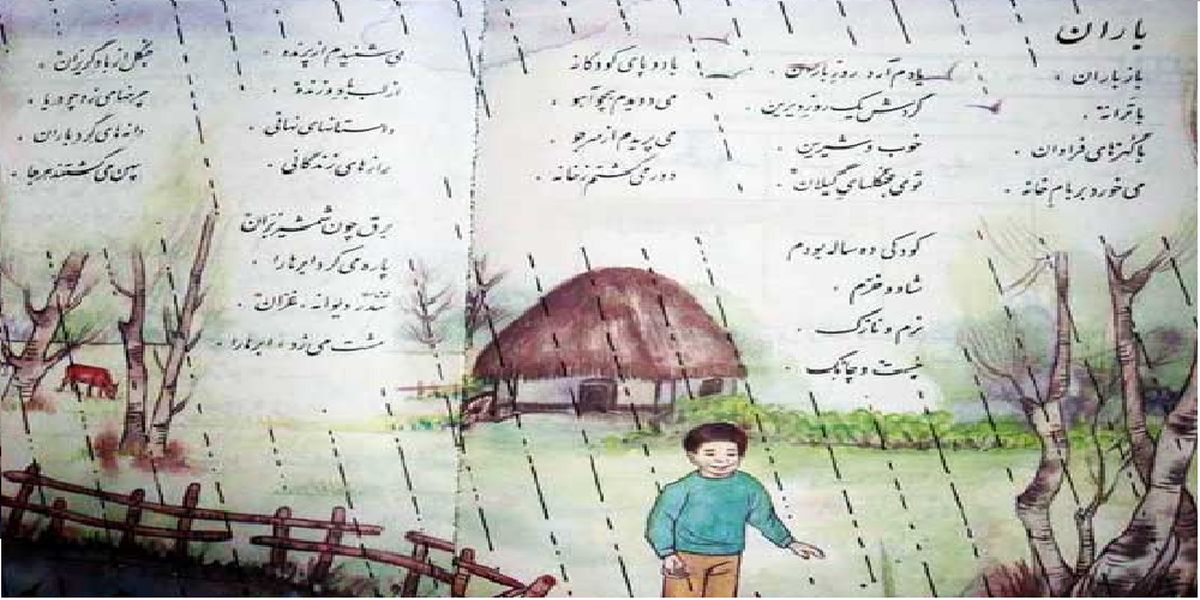 باران
باز باران .
با ترانه .
با گهرهای فراوان .
می خورد بر بام خانه .
یادم آرد روز باران .
گردش یک روز دیرین .
خوب و شیرین .
توی جنگلهای گیلان .
کودکی ده ساله بودم
شاد و خرّم .
نرم و نازک .
چست و چابک .
با دو پای کودکانه
می دویدم همچو آهو .
می پریدم از سر جو .
دور می گشتم ز خانه .
می شنیدم از پرنده .
از لب باد وزنده .
داستانهای نهانی .
رازهای زندگانی .
برق چون شمشیر بّران
پاره می کرد ابرها را .
تندر دیوانه ، غرّان .
مشت می زد ، ابرها را .
جنگل از باد گریزان .
چرخها می زد چو دریا .
دانه های گرد باران .
پهن می گشتند هر جا .